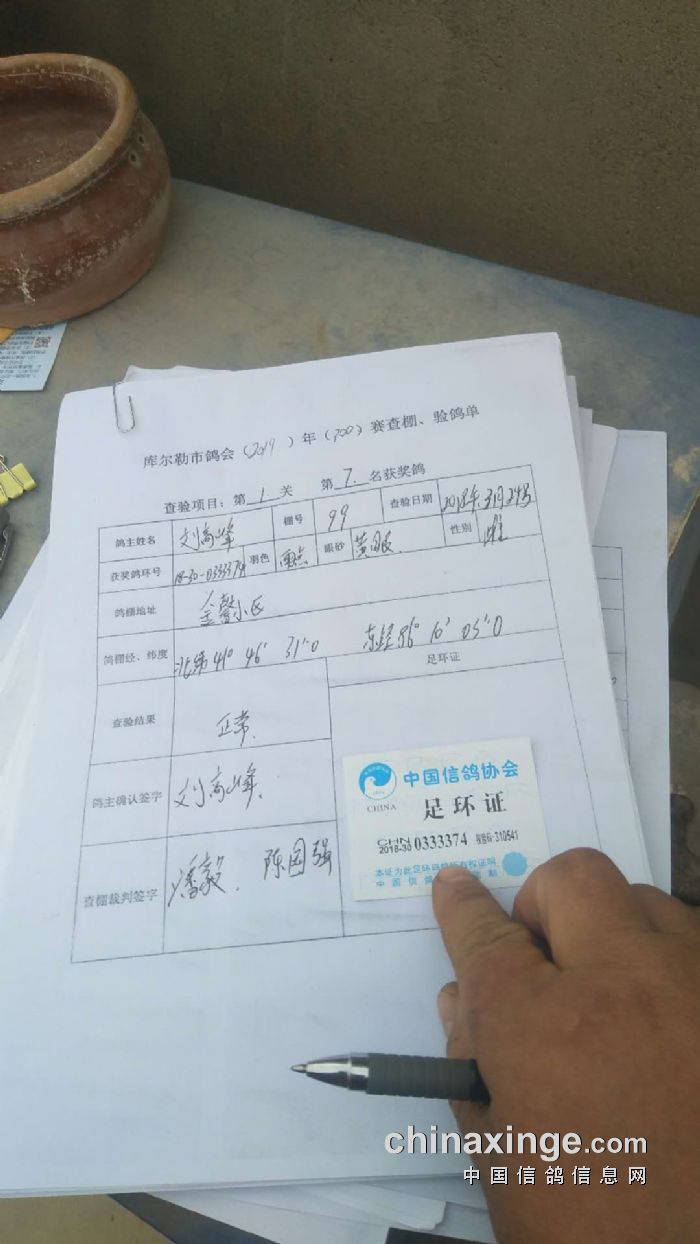 库尔勒市鸽会（2019）年（700）赛查棚、验鸽单
查验项目：第1.关 第7.名获奖鸽
鸽主姓名 刘高峰 棚号 99 查验日期 2018年3月24号
获奖鸽环号 18-30-0333374 羽色 雨点 眼砂 黄眼 性别 雌
鸽棚地址 金馨小区
鸽棚经、纬度 北纬41° 46′ 31″0 东经86° 10′ 05″0
足环证
查验结果 正常.
鸽主确认签字 刘高峰.
查棚裁判签字 潘毅. 陈国强
中国信鸽协会
CHINA
足环证
CHN
2018-30 0333374 310541
本证为此足环
中国信鸽
chinaxinge.com
中国信鸽信息网